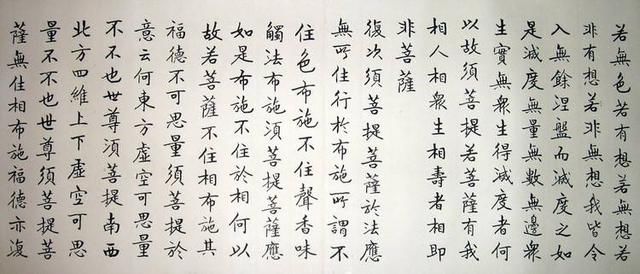 若無色若有想若無想若
非有想若非無想我皆令
入無餘涅盤而滅度之如
是滅度無量無數無邊衆
生實無衆生得滅度者何
以故須菩提若菩薩有我
相人相衆生相壽者相即
非菩薩
復次須菩提菩薩於法應
無所住行於布施所謂不
住色布施不住聲香味
觸法布施須菩提菩薩應
如是布施不住於相何以
故若菩薩不住相布施其
福德不可思量須菩提於
意云何東方虛空可思量
不不也世尊須菩提南西
北方四維上下虛空可思
量不不也世尊須菩提菩
薩無住相布施福德亦復